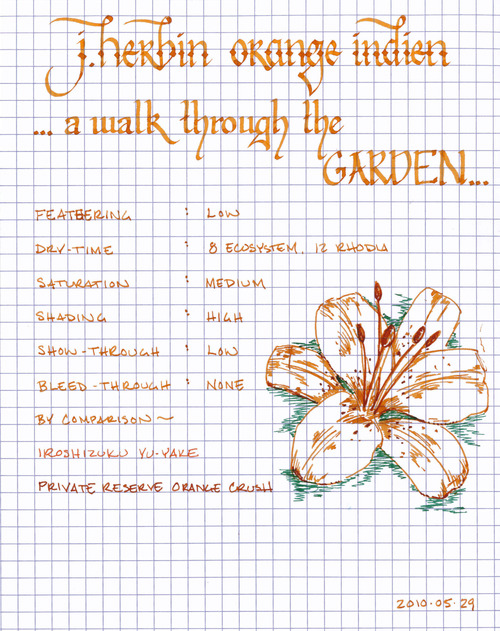 j. herbin orange indien
... a walk through the
GARDEN...
FEATHERING : LOW
DRY-TIME : 8 ECOSYSTEM, 12 RHODIA
SATURATION : MEDIUM
SHADING : HIGH
SHOW-THROUGH : LOW
BLEED-THROUGH : NONE
BY COMPARISON ~
IROSHIZUKU YU-YAKE
PRIVATE RESERVE ORANGE CRUSH
2010.05.29